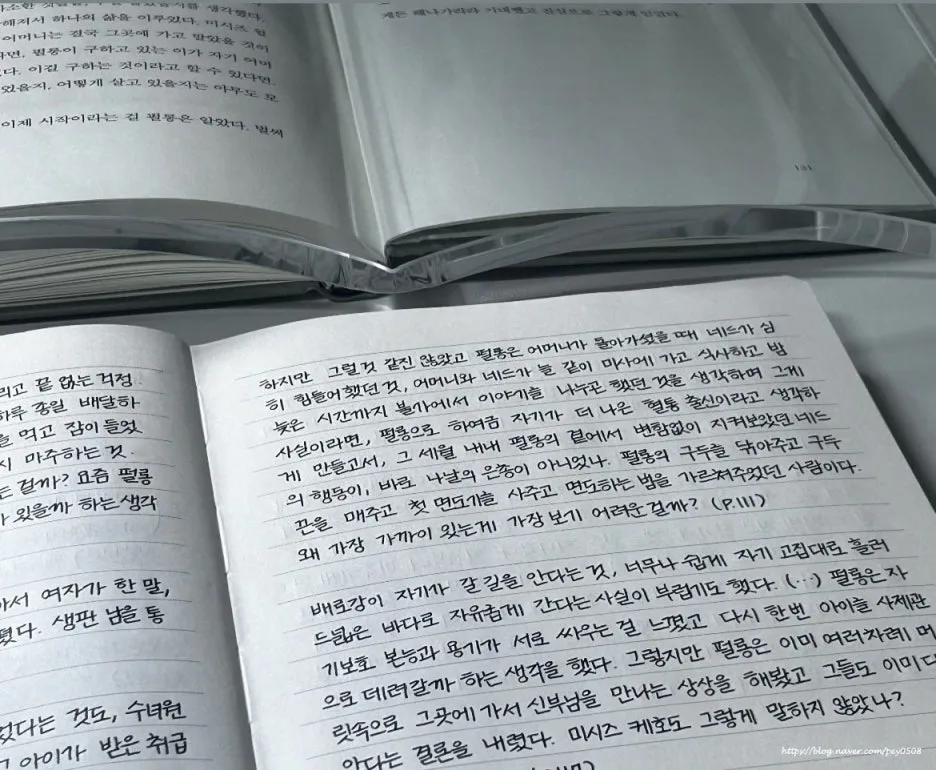 사소한
해져서 하나의 삶을 이루었다. 미시즈 윌
어머니는 결국 그곳에 가고 말았을 것이
라면, 펄롱이 구하고 있는 이가 자기 어머
다. 이걸 구하는 것이라고 할 수 있다면.
있을지, 어떻게 살고 있을지는 아무도 모
이제 시작이라는 걸 펄롱은 알았다. 벌써
131
리고 끝 없는 걱정
하루 종일 배달하
을 먹고 잠이 들었
시 마주하는 것.
는 걸까? 요즘 펄롱
가 있을까 하는 생각
아서 여자가 한 말,
렸다. 생판 남을 통
었다는 것도, 수녀원
그 아이가 받은 취급
하지만 그럴 것 같진 않았고 펄롱은 어머니가 돌아가셨을 때 네드가 심
히 힘들어했던 것, 어머니와 네드가 늘 같이 미사에 가고 식사하고 밤
늦은 시간까지 불가에서 이야기를 나누곤 했던 것을 생각하며 그게
사실이라면, 펄롱으로 하여금 자기가 더 나은 혈통 출신이라고 생각하
게 만들고서, 그 세월 내내 펄롱의 곁에서 변함없이 지켜보았던 네드
의 행동이, 바로 나날의 은총이 아니었나. 펄롱의 구두를 닦아주고 구두
끈을 매주고 첫 면도기를 사주고 면도하는 법을 가르쳐주었던 사람이다.
왜 가장 가까이 있는게 가장 보기 어려운 걸까? (P.111)
배로강이 자기가 갈 길을 안다는 것, 너무나 쉽게 자기 고집대로 흘러
드넓은 바다로 자유롭게 간다는 사실이 부럽기도 했다. (…) 펄롱은 자
기보호 본능과 용기가 서로 싸우는 걸 느꼈고 다시 한번 아이를 사제관
으로 데려갈까 하는 생각을 했다. 그렇지만 펄롱은 이미 여러차례 머
릿속으로 그곳에 가서 신부님을 만나는 상상을 해봤고 그들도 이미 다
안다는 결론을 내렸다. 미시즈 케호도 그렇게 말하지 않았나?
http://blog.naver.com/pey0508